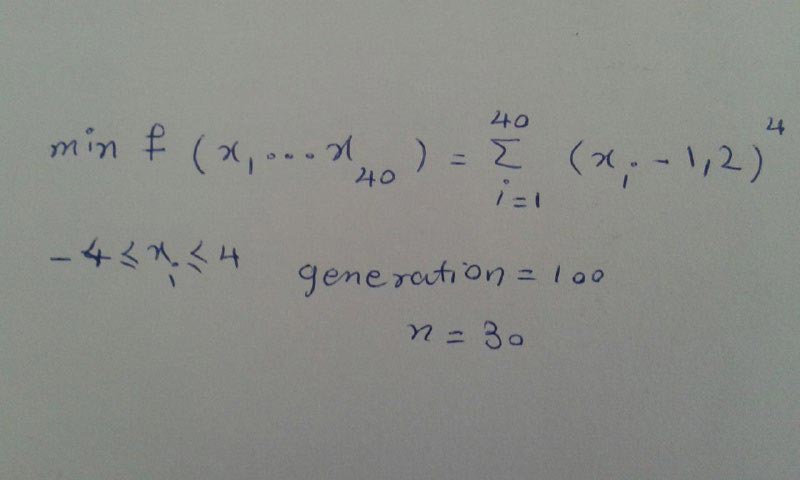 min f (x₁ ... x₄₀) = ⁴⁰Σᵢ₌₁ (xᵢ - 1,2)⁴
- 4 ≤ xᵢ ≤ 4 generation = 100
n = 30